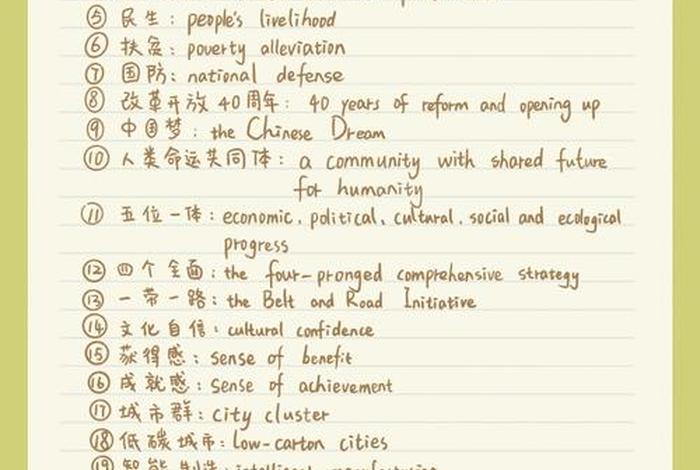 ⑤ 民生: people's livelihood
⑥ 扶贫: poverty alleviation
⑦ 国防: national defense
⑧ 改革开放40周年: 40 years of reform and opening up
⑨ 中国梦: the Chinese Dream
⑩ 人类命运共同体: a community with shared future
for humanity
⑪ 五位一体: economic, political, cultural, social and ecological
progress
⑫ 四个全面: the four-pronged comprehensive strategy
⑬ 一带一路: the Belt and Road Initiative
⑭ 文化自信: cultural confidence
⑮ 获得感: sense of benefit
⑯ 成就感: sense of achievement
⑰ 城市群: city cluster
⑱ 低碳城市: low-carton cities
⑲ 智能制造: intelligent manufacturing